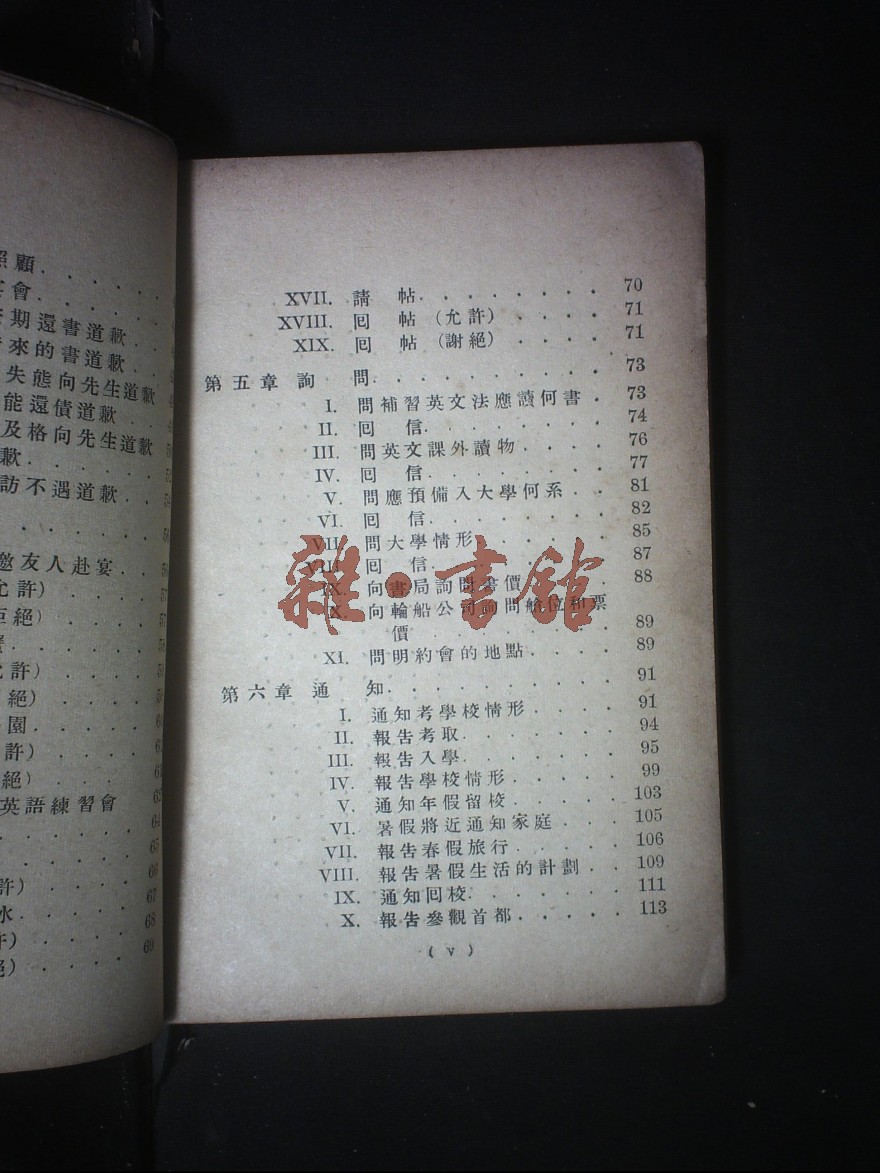 照顧
宴會
期還書道歉
來的書道歉
失態向先生道歉
能還債道歉
及格向先生道歉
歉
訪不遇道歉
邀友人赴宴
允許)
拒絕)
許)
絕)
園
許)
絕)
英語練習會
64
65
66
許)
67
水
68
許)
69
絕)
XVII. 請 帖. . . . . . . . 70
XVIII. 囘 帖 (允許) . . . . 71
XIX. 囘 帖 (謝絕) . . . . 71
第五章 詢 問. . . . . . . . . . 73
I. 問補習英文法應讀何書 . . 73
II. 囘 信. . . . . . . . 74
III. 問英文課外讀物 . . . . 76
IV. 囘 信. . . . . . . . 77
V. 問應預備入大學何系 . . 81
VI. 囘 信. . . . . . . . 82
VII. 問大學情形. . . . . . 85
VIII. 囘 信. . . . . . . . 87
IX. 向書局詢問書價 . . . . 88
X. 向輪船公司詢問艙位和票
價 . . . . . . . . 89
XI. 問明約會的地點 . . . . 89
第六章 通 知 . . . . . . . . . 91
I. 通知考學校情形 . . . . 91
II. 報告考取. . . . . . . 94
III. 報告入學 . . . . . . 95
IV. 報告學校情形. . . . . 99
V. 通知年假留校 . . . . . 103
VI. 暑假將近通知家庭 . . . 105
VII. 報告春假旅行. . . . . 106
VIII. 報告暑假生活的計劃 . . 109
IX. 通知囘校. . . . . . . 111
X. 報告參觀首都. . . . . 113
( v )
雜·書館